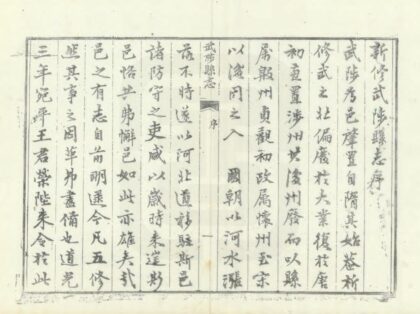 新修武陟縣志序
武陟爲邑肇置自隋其始蓋析
修武之北偏廢於大業復於唐
初直置涉州其後州廢而以縣
屬殷州貞觀初改屬懷州玉宗
以後因之入 國朝以河水漲
武陟縣志 序 一
落不時遂以河北道移駐斯邑
諸防守之吏咸以歲時來蒞斯
邑恪共弗懈邑如此亦雄矣哉
邑之有志自前明迄今凡五修
然其事之因革弗盡備也道光
三年宛平王君榮陛來令於此